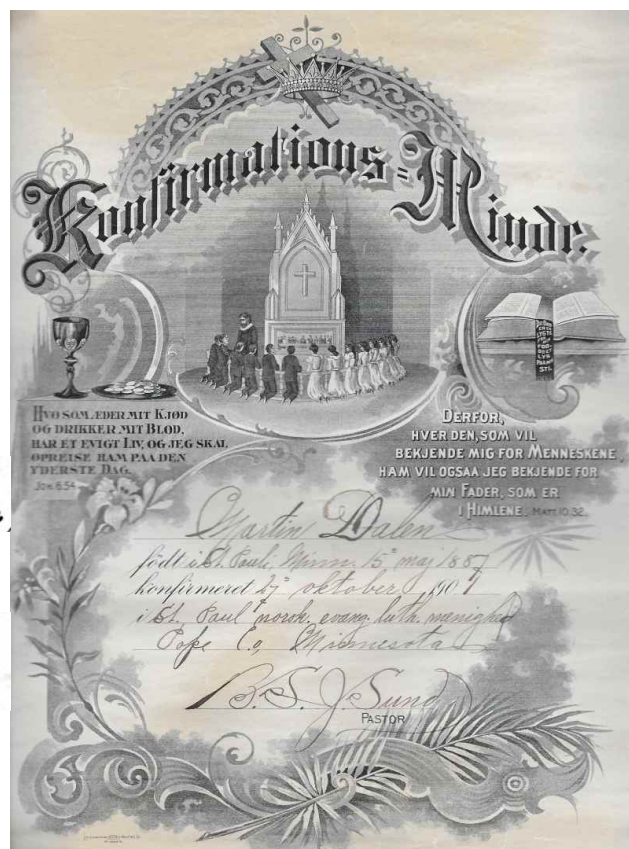 Konfirmations=Minde.
HVO SOM ÆDER MIT KJØD
OG DRIKKER MIT BLOD,
HAR ET EVIGT LIV, OG JEG SKAL
OPREISE HAM PAA DEN
YDERSTE DAG.
JOH. 6.54.
DERFOR,
HVER DEN, SOM VIL
BEKJENDE MIG FOR MENNESKENE,
HAM VIL OGSAA JEG BEKJENDE FOR
MIN FADER, SOM ER
I HIMLENE. MATT. 10.32.
Martin Dalen
født i St. Paul, Minn. 15 maj 1887
konfirmeret oktober 190
i St. Paul norsk. evang. luth. menighed
Pope Co, Minnesota
B. S. J. Sund
PASTOR